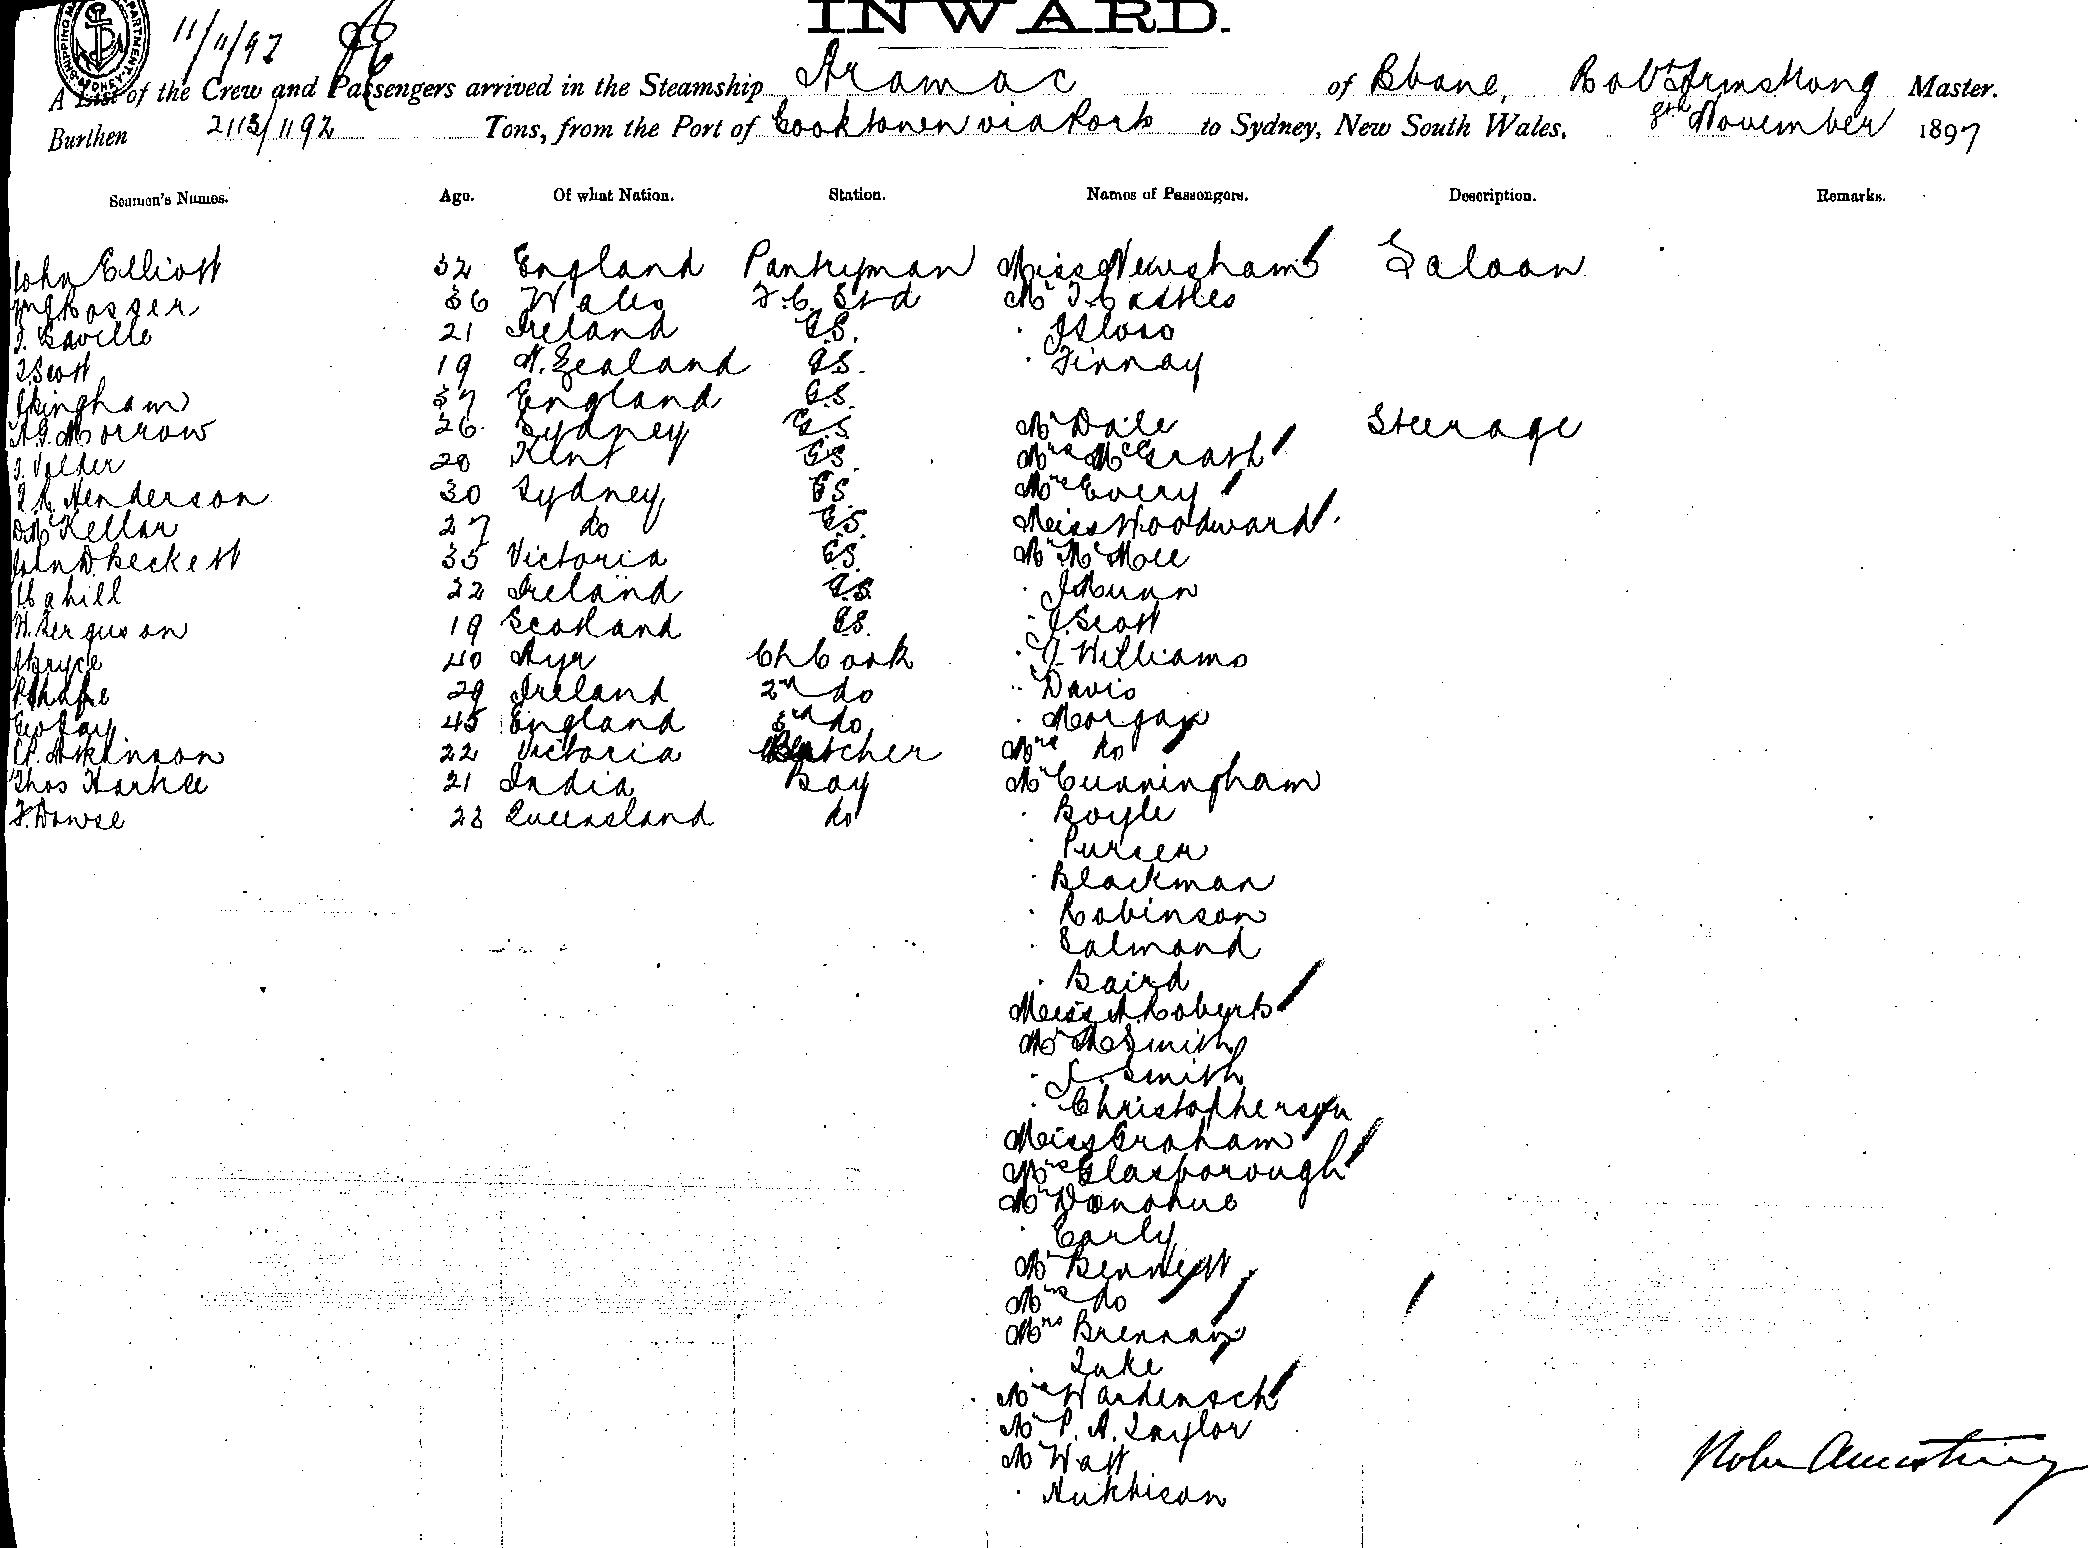 INWARD.
11/11/97
A List of the Crew and Passengers arrived in the Steamship Aramac of Bbane, Robt Armstrong Master.
Burthen 2113/1192 Tons, from the Port of Cooktown via Ports to Sydney, New South Wales, 8th November 1897
Seamen's Names. Age. Of what Nation. Station. Names of Passengers. Description. Remarks.
John Elliott 32 England Pantryman Miss Newsham Saloon
36 Wales F.C. Std Mr T. Castles
Saville 21 Ireland G.S. "
Scott 19 N. Zealand G.S. " Finnay
37 England G.S.
Morrow 26 Sydney G.S. Mr Dale Steerage
20 Kent G.S. Mrs McGrath
Henderson 30 Sydney G.S. Mrs Every
D McKellar 27 do G.S. Miss Woodward
John D. Beckett 35 Victoria G.S. Mr McMee
Cahill 22 Ireland G.S. " J Munn
Ferguson 19 Scotland G.S. " J. Scott
Bryce 40 Ayr Ch Cook " J Williams
29 Ireland 2nd do " Davis
Geo Fay 45 England 3rd do " Morgan
Atkinson 22 Victoria Butcher Mrs do
Thos Harkee 21 India Boy Mr Cunningham
F. Dowse 23 Queensland do " Boyle
" Purcer
" Blackman
" Robinson
" Salmond
" Baird
Miss A Roberts
Mr A Smith
" Smith
" Christopherson
Miss Graham
Mrs Glasborough
Mr Donohue
" Early
Mr Bennett
Mrs do
Mrs Brennan
" Luke
Mrs Wardensch
Mr P. A. Taylor
Mr Watt
" Hutchison
Robt Armstrong